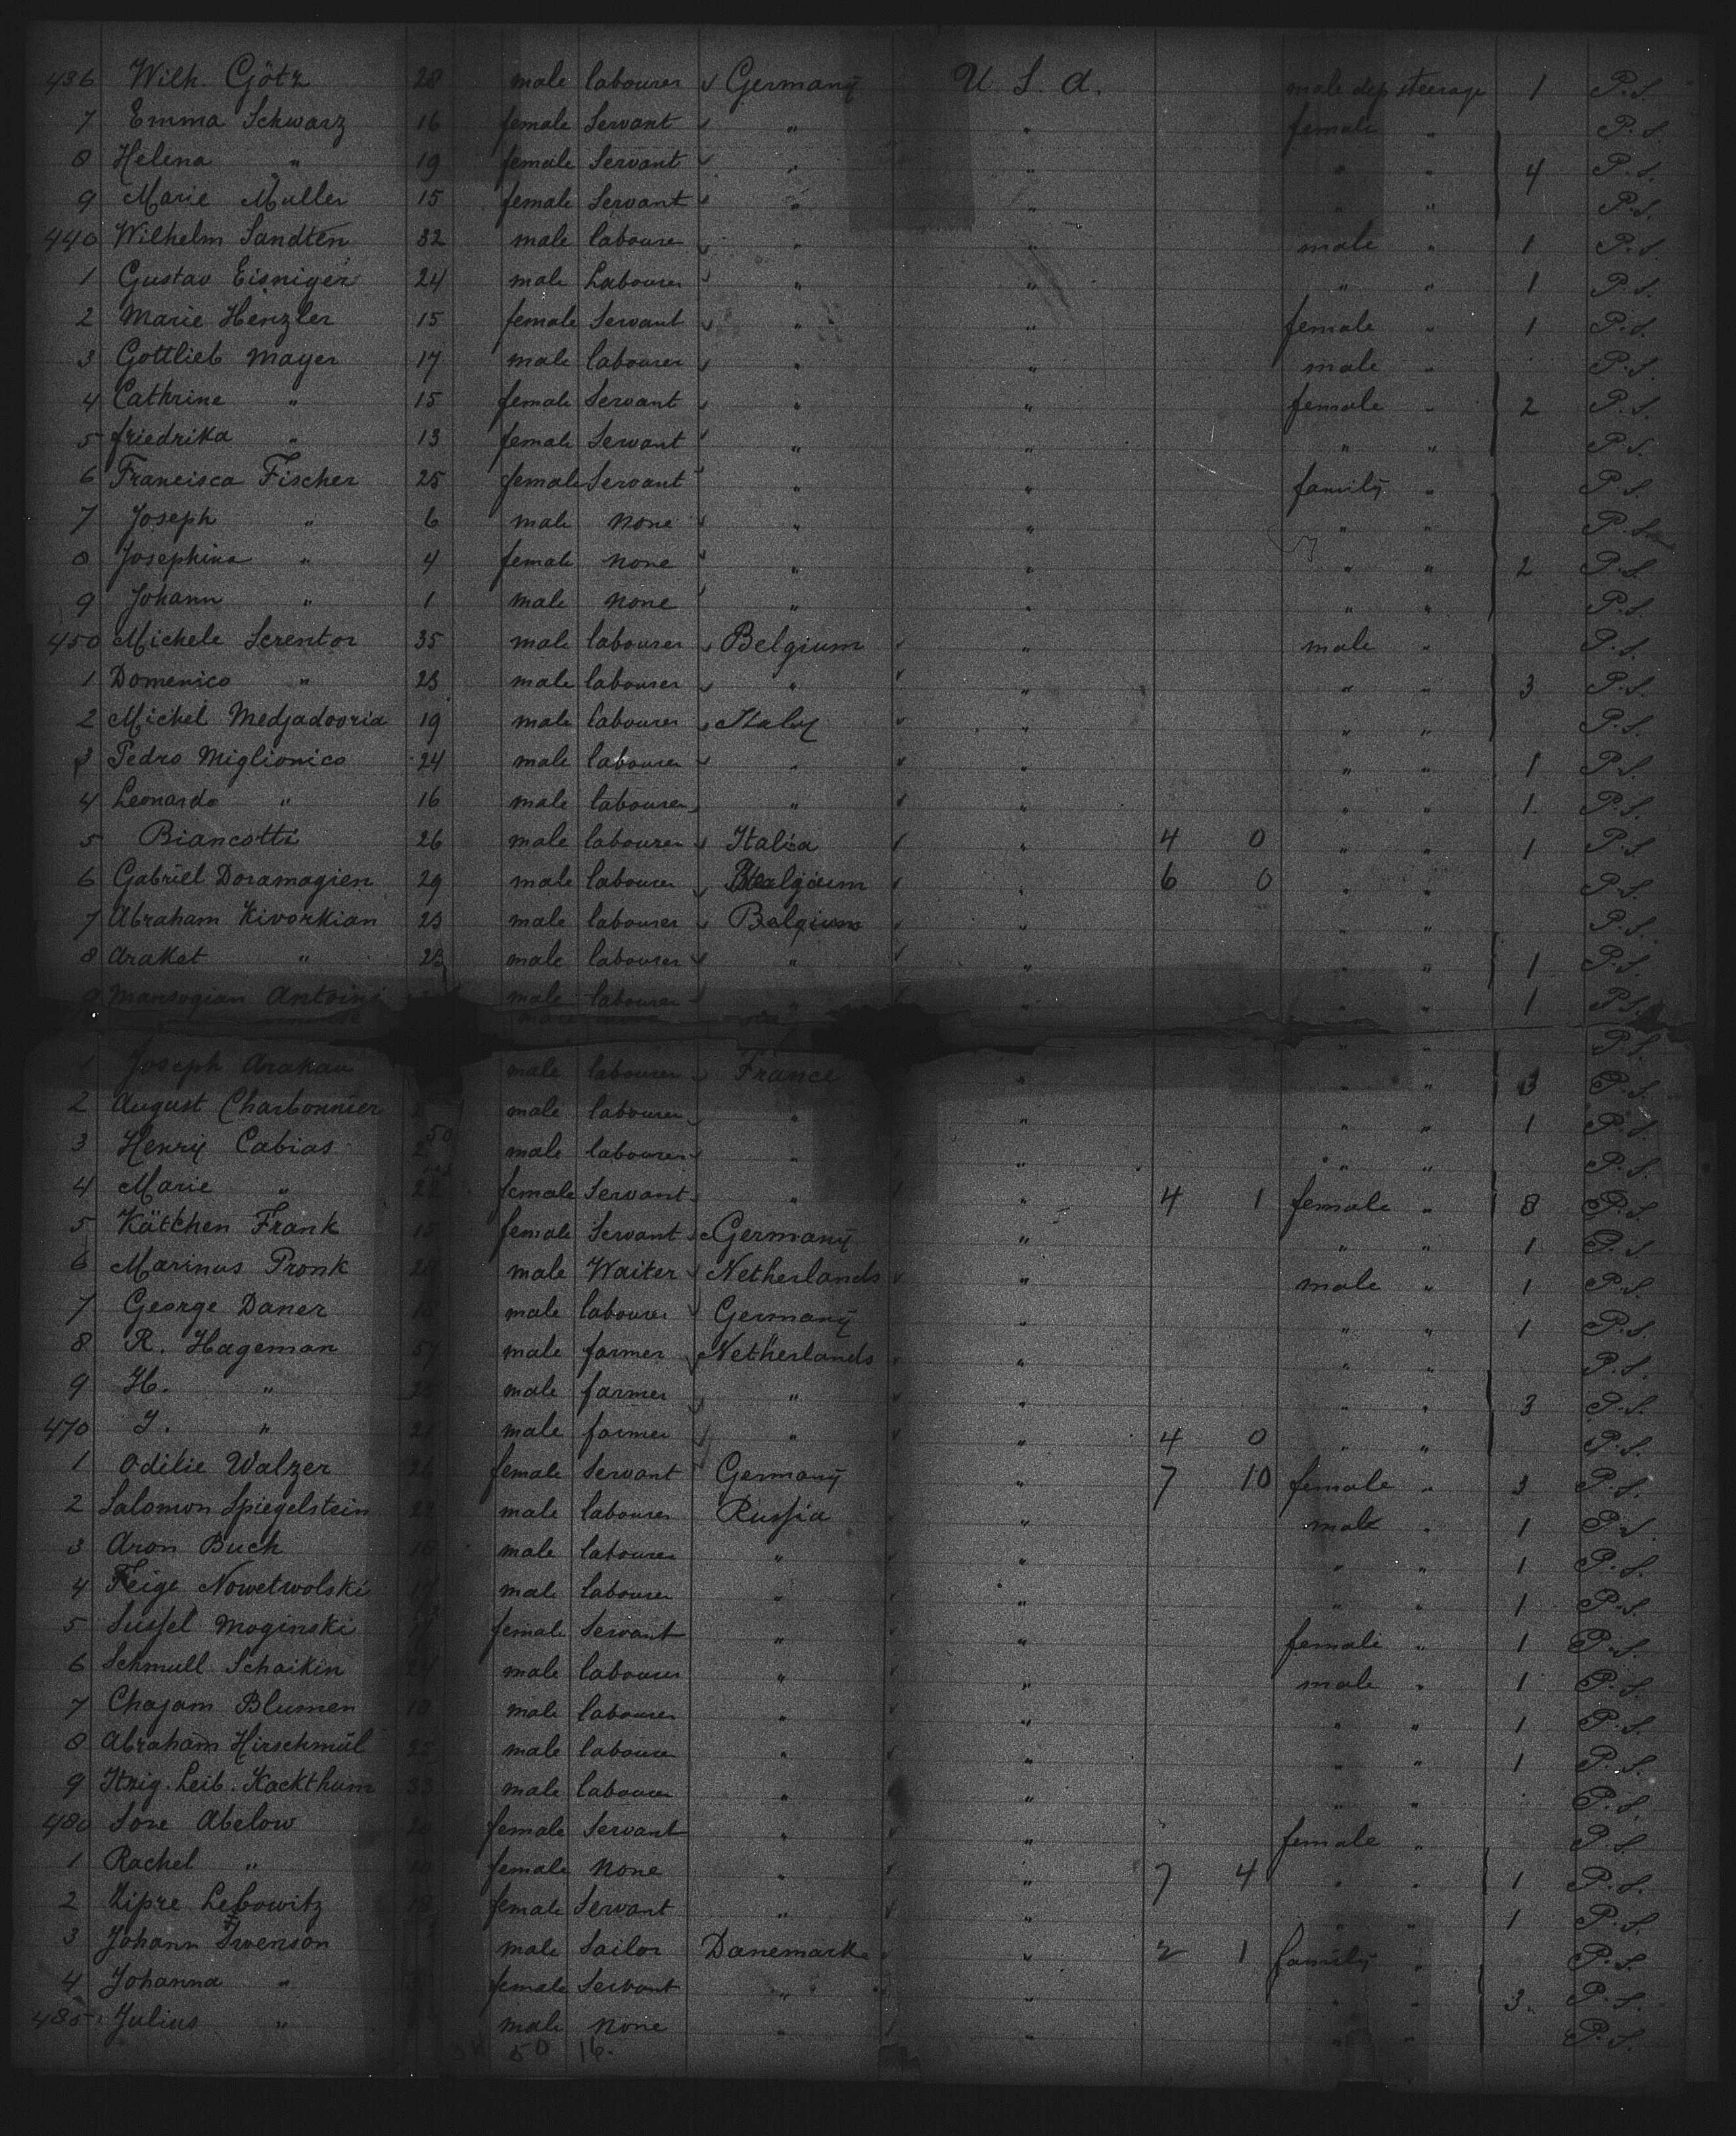 436 Wilh. Götz 28 male labourer Germany U. S. A. male dep steerage 1 P.S.
7 Emma Schwarz 16 female Servant " " female " P.S.
8 Helena " 19 female Servant " " " " 4 P.S.
9 Marie Muller 15 female Servant " " " " P.S.
440 Wilhelm Sandten 32 male labourer " " male " 1 P.S.
1 Gustav Eisniger 24 male Labourer " " " " 1 P.S.
2 Marie Henzler 15 female Servant " " female " 1 P.S.
3 Gottlieb Mayer 17 male labourer " " male " P.S.
4 Cathrine " 15 female Servant " " female " 2 P.S.
5 friedrika " 13 female Servant " " " " P.S.
6 Francisca Fischer 25 female Servant " " family " P.S.
7 Joseph " 6 male none " " " " P.S.
8 Josephina " 4 female none " " " " 2 P.S.
9 Johann " 1 male none " " " " P.S.
450 Michele Screntor 35 male labourer Belgium " male " P.S.
1 Domenico " 23 male labourer " " " " 3 P.S.
2 Michel Medjadooria 19 male labourer Italy " " " P.S.
3 Pedro Miglionico 24 male labourer " " " " 1 P.S.
4 Leonardo " 16 male labourer " " " " 1 P.S.
5 Biancotti 26 male labourer Italia " 4 0 " " 1 P.S.
6 Gabriel Doramagien 29 male labourer Belgium " 6 0 " " P.S.
7 Abraham Kivorkian 23 male labourer Belgium " " " P.S.
8 Araket " 23 male labourer " " " " 1 P.S.
9 Mansogian Antoine male labourer " " " " 1 P.S.
" " P.S.
1 Joseph Arakau male labourer France " " " 3 P.S.
2 August Charbonnier male labourer " " " " 1 P.S.
3 Henry Cabias male labourer " " " " P.S.
4 Marie " female Servant " " 4 1 female " 8 P.S.
5 Kätchen Frank 15 female Servant Germany " " " 1 P.S.
6 Marinus Pronk male Waiter Netherlands " male " 1 P.S.
7 George Daner male labourer Germany " " " 1 P.S.
8 R. Hageman 57 male farmer Netherlands " " " P.S.
9 H. " male farmer " " " " 3 P.S.
470 J. " male farmer " " 4 0 " " P.S.
1 Odilie Walzer 26 female Servant Germany " 7 10 female " 3 P.S.
2 Salomon Spiegelstein male labourer Russia " male " 1 P.S.
3 Aron Buch male labourer " " " " 1 P.S.
4 Feige Nowetwolski male labourer " " " " 1 P.S.
5 Sussel Moginski female Servant " " female " 1 P.S.
6 Schmull Schaikin male labourer " " male " 1 P.S.
7 Chajam Blumen male labourer " " " " 1 P.S.
8 Abraham Hirschmül male labourer " " " " 1 P.S.
9 Itzig. Leib. Kackthum 33 male labourer " " " " P.S.
480 Sore Abelow female Servant " " female " P.S.
1 Rachel " female none " " 7 4 " " 1 P.S.
2 Zipre Lebowitz 18 female Servant " " " " 1 P.S.
3 Johann Swenson male Sailor Danemark " 2 1 family " P.S.
4 Johanna " female Servant " " " " 3 P.S.
485 Julius " male none " " " " P.S.
50 16.